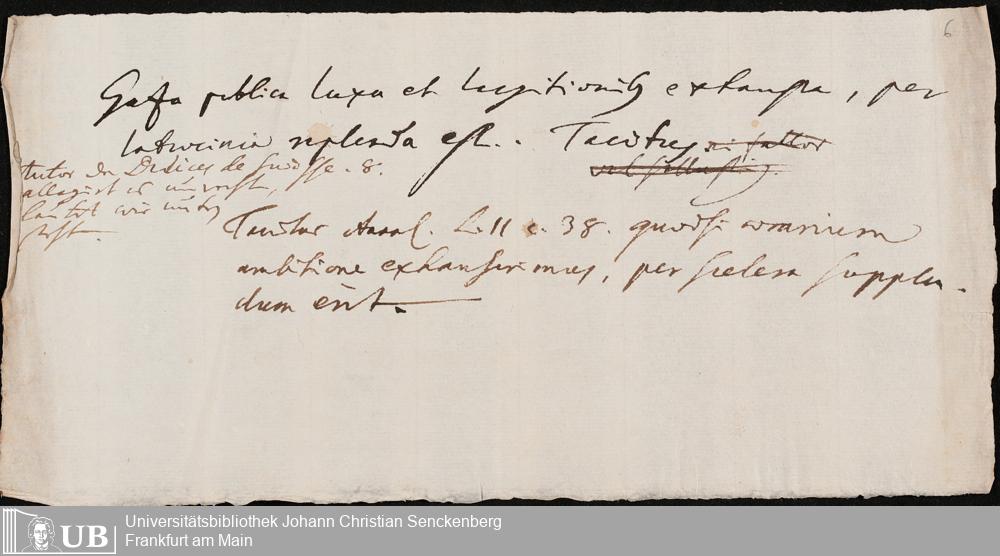 6
Gaza publica luxu et largitionib exhausta, per
latrocinia replenda est. Tacitus ni fallor
vel Sallustius.
autor de Delices de Suisse. 8.
allegirt es
lautet wie unten
steht.
Tacitus Annal. L. II c. 38. quod si aerarium
ambitione exhauserimus, per scelera supplen-
dum erit.
UB
Universitätsbibliothek Johann Christian Senckenberg
Frankfurt am Main